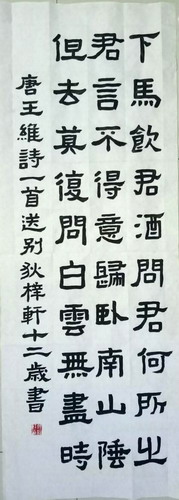 下馬飲君酒問君何所之
君言不得意歸卧南山陲
但去莫復問白雲無盡時
唐王維詩一首送别狄梓軒十二歲書